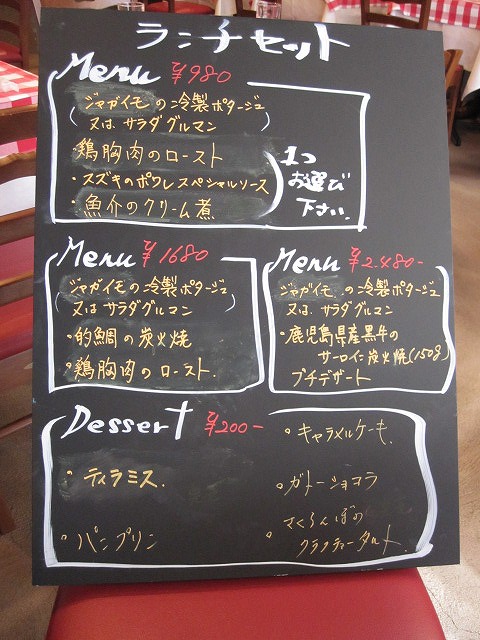 ランチセット
Menu ¥980
ジャガイモの冷製ポタージュ
(又は サラダグルマン)
・鶏胸肉のロースト
・スズキのポワレスペシャルソース
・魚介のクリーム煮
1つ
お選び
下さい.
Menu ¥1680
ジャガイモの冷製ポタージュ
(又は サラダグルマン)
・的鯛の炭火焼
・鶏胸肉のロースト.
Menu ¥2.480-
ジャガイモの冷製ポタージュ
又は サラダグルマン
・鹿児島県産黒牛の
サーロイン炭火焼(150g)
プチデザート
Dessert ¥200-
・ティラミス.
・パンプリン
・キャラメルケーキ.
・ガトーショコラ
・さくらんぼの
クラフティータルト.